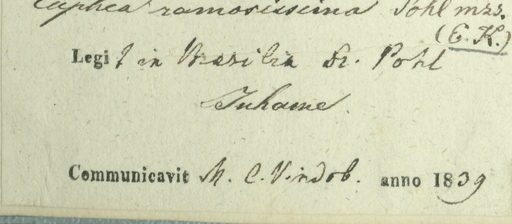 Cuphea ramosissima Pohl mss.
(E. K.)
Legit in Brasilia Dr. Pohl
Inhame.
Communicavit M. C. Vindob. anno 1839